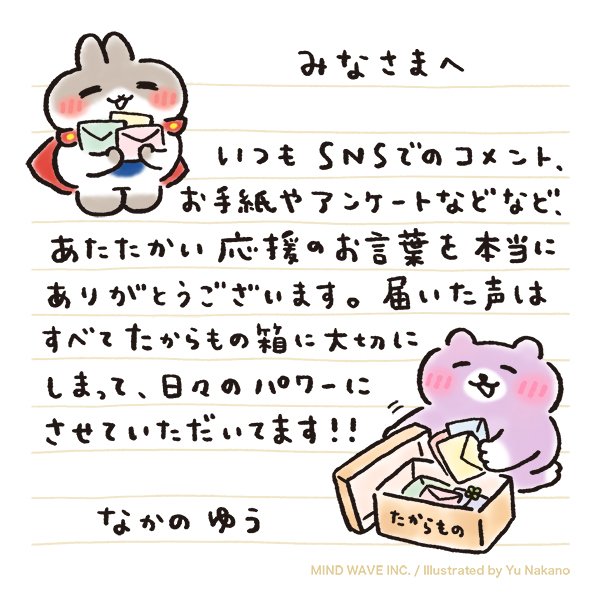 みなさまへ
いつも SNSでのコメント、
お手紙やアンケートなどなど、
あたたかい 応援のお言葉を 本当に
ありがとうございます。 届いた声は
すべて たからもの箱に 大切に
しまって、日々の パワーに
させていただいてます!!
たからもの
なかの ゆう
MIND WAVE INC. / Illustrated by Yu Nakano